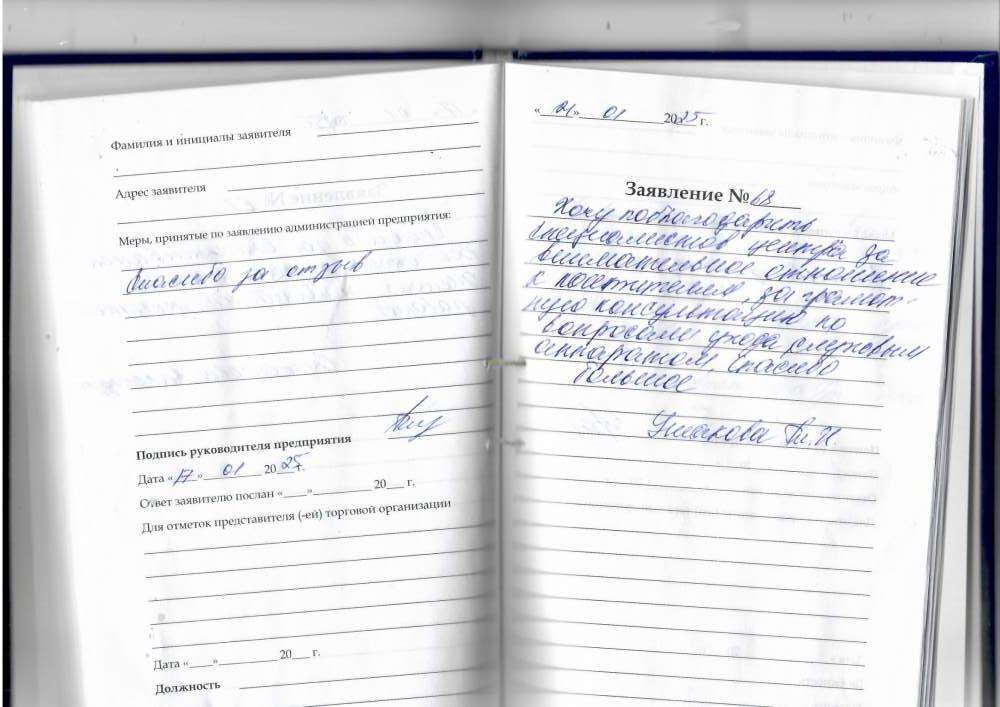 Фамилия и инициалы заявителя
Адрес заявителя
Меры, принятые по заявлению администрацией предприятия:
Спасибо за отзыв
Подпись руководителя предприятия
Дата «17» 01 2025 г.
Ответ заявителю послан «___»__________ 20___ г.
Для отметок представителя (-ей) торговой организации
Дата «____»__________ 20___ г.
Должность
«21» 01 2025 г.
Заявление №68
Хочу поблагодарить
специалистов центра за
внимательное отношение
к посетителям, за грамот-
ную консультацию по
вопросам ухода слуховым
аппаратом. Спасибо
большое
Ушакова Т.И.